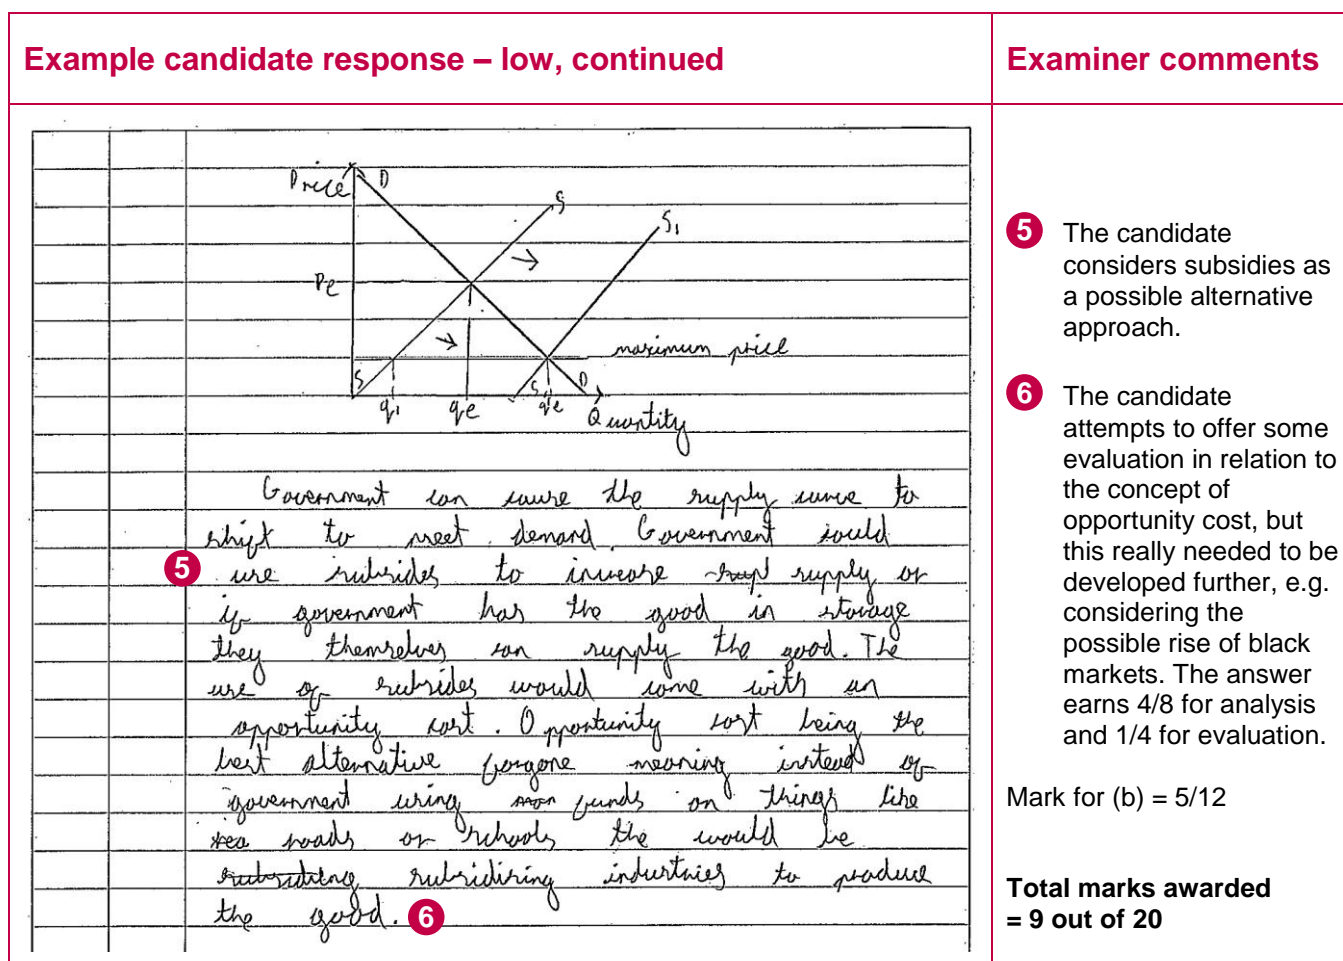 Example candidate response – low, continued
Examiner comments
Price
D
S
S1
Pe
maximum price
S
S
D
q1
qe
q'e
Quantity
Government can cause the supply curve to
shift to meet demand. Government could
5
use subsides to increase supply or
if government has the good in storage
they themselves can supply the good. The
use of subsides would come with an
opportunity cost. Opportunity cost being the
best alternative forgone meaning instead of
government using funds on things like
roads or schools the would be
subsidising industries to produce
the good. 6
5 The candidate
considers subsidies as
a possible alternative
approach.
6 The candidate
attempts to offer some
evaluation in relation to
the concept of
opportunity cost, but
this really needed to be
developed further, e.g.
considering the
possible rise of black
markets. The answer
earns 4/8 for analysis
and 1/4 for evaluation.
Mark for (b) = 5/12
Total marks awarded
= 9 out of 20